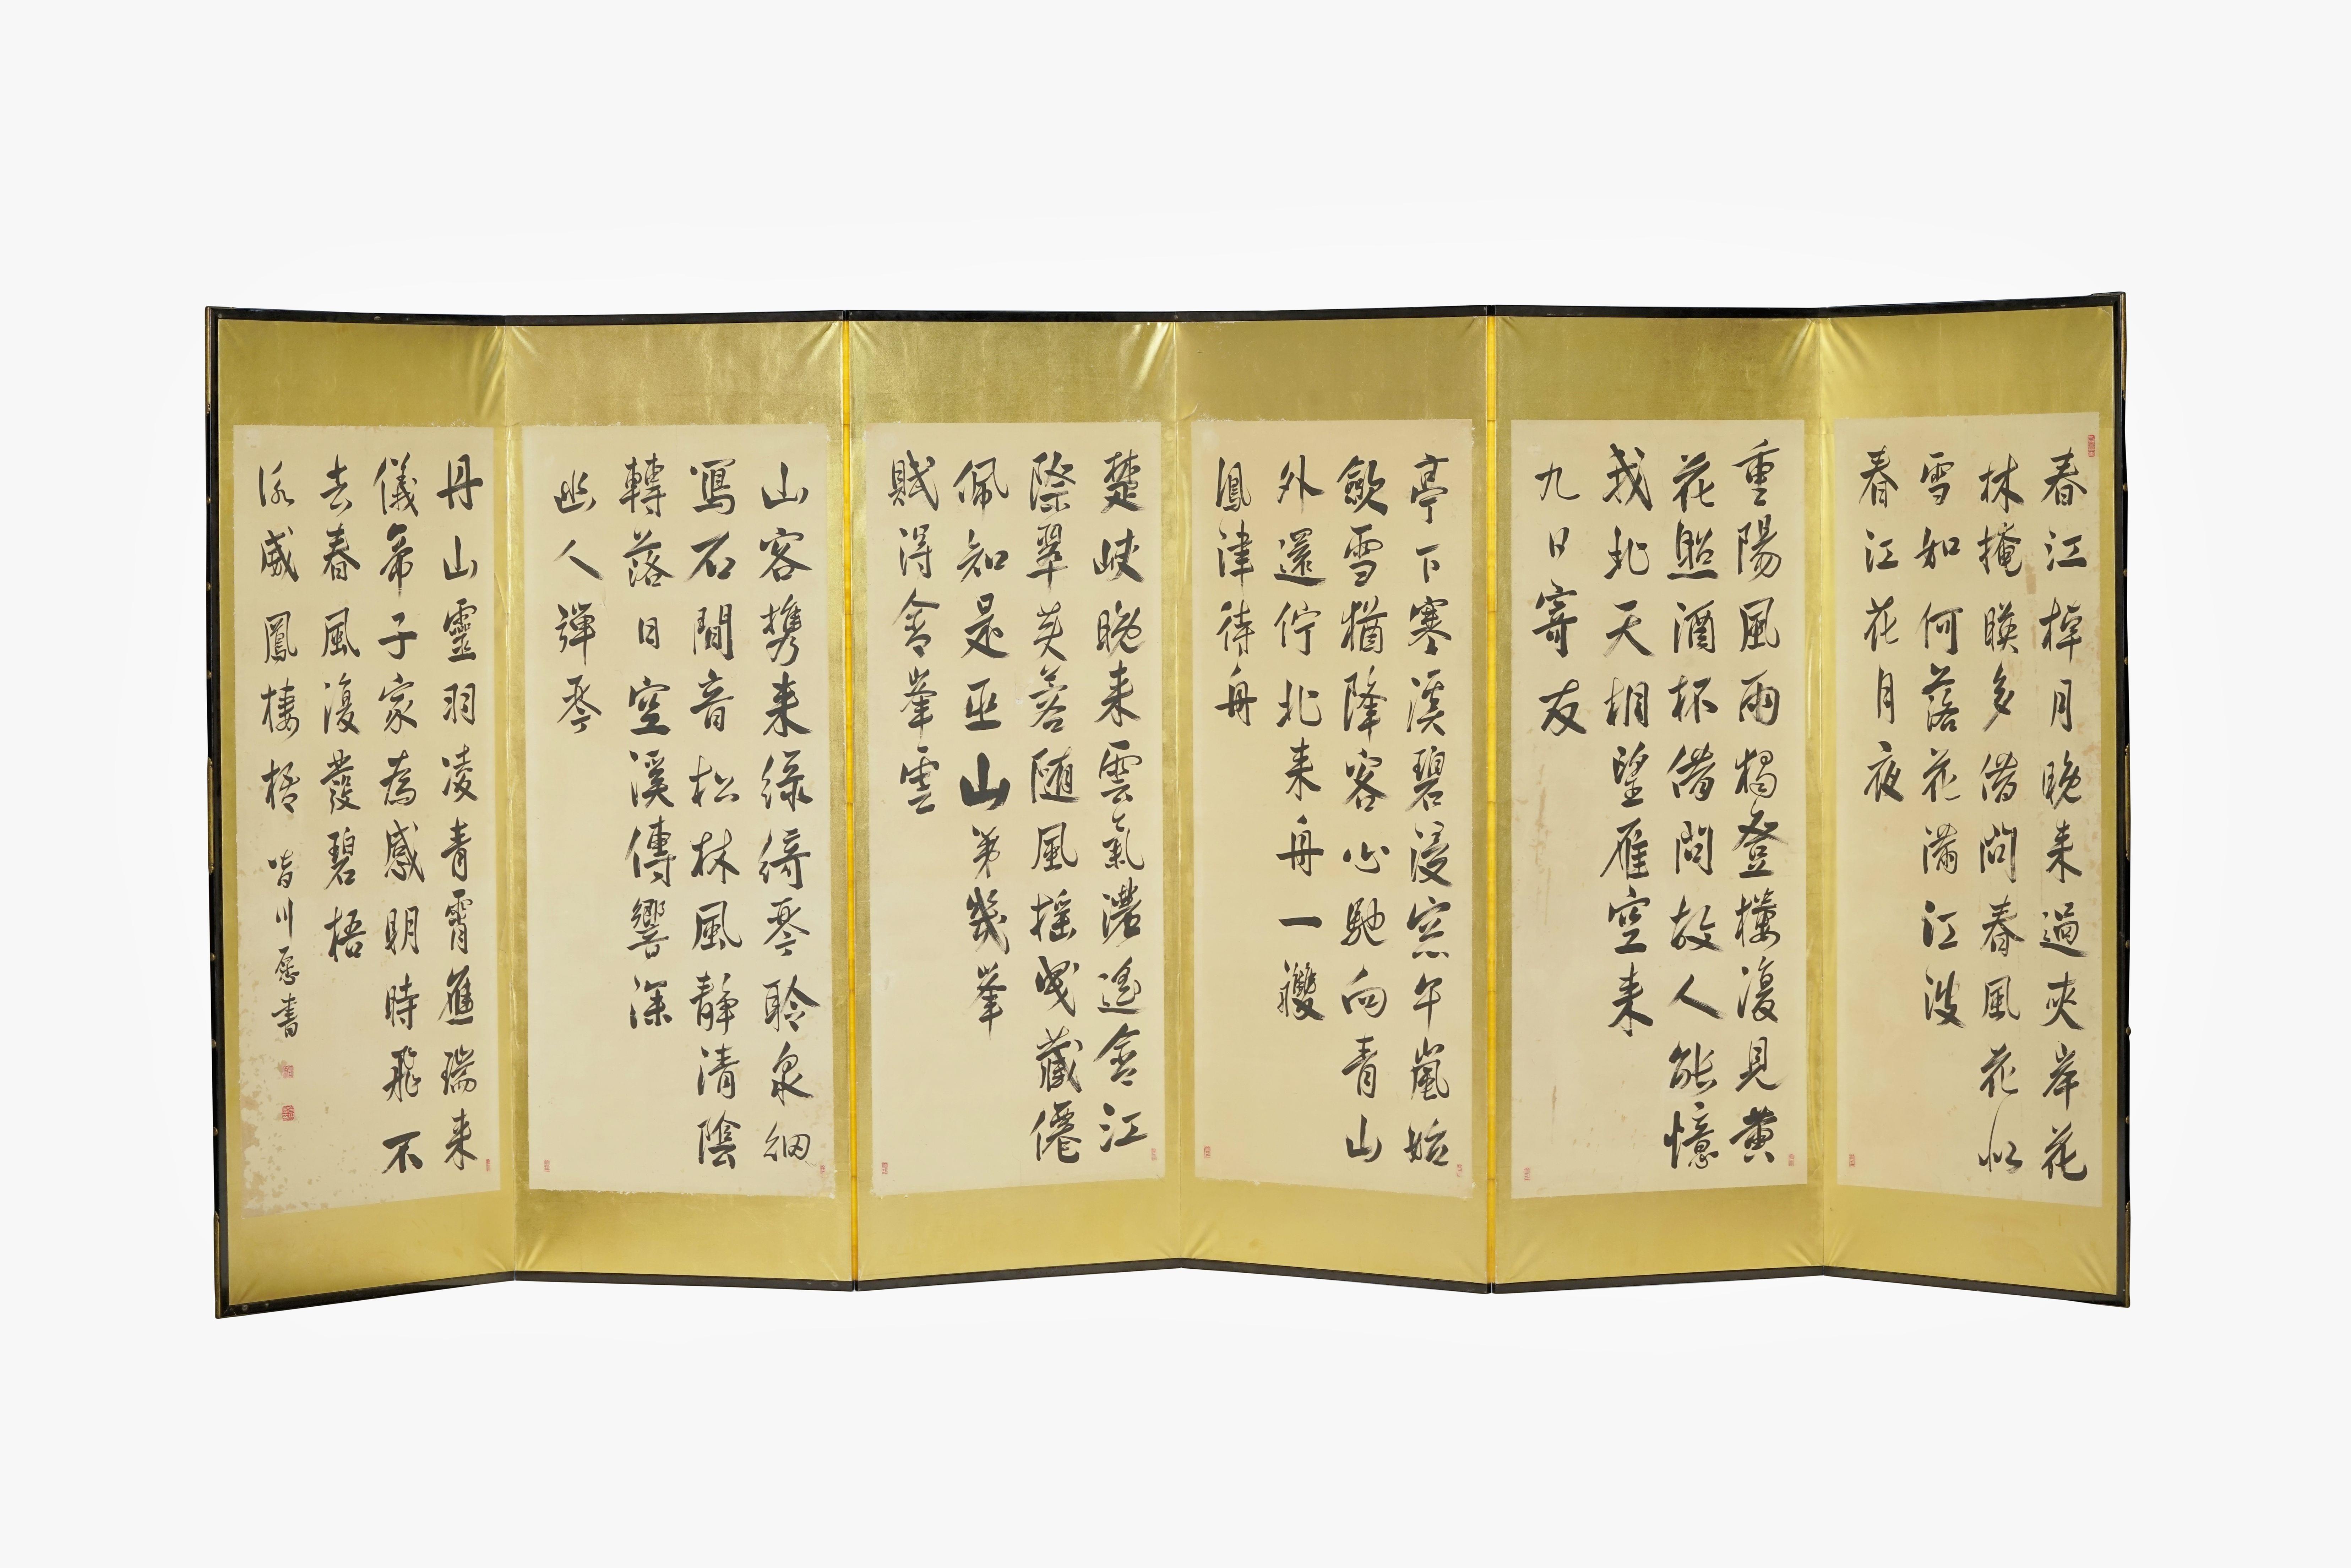 春江棹月晚来過夾岸花
林掩暎多借問春風花似
雪如何落花满江波
春江花月夜
重陽風雨獨登樓復見黄
花照酒杯借問故人能憶
我北天相望雁空来
九日寄友
亭下寒溪碧浸窓午嵐始
歛雪猶降客心馳向青山
外還佇北来舟一艭
鳳津待舟
楚峡晚来雲氣濃遙含江
際翠芙蓉随風摇曳藏僊
佩知是巫山第幾峯
賦得含峯雲
山客携来綠綺琴聆泉細
寫石間音松林風静清陰
轉落日空溪傳響深
幽人彈琴
丹山靈羽凌青霄應瑞来
儀帝子家為感明時飛不
去春風復發碧梧
詠威鳳棲梧 皆川愿書